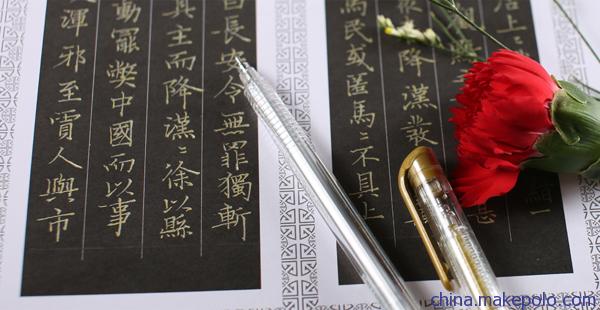 居上
降漢發
馬民或匿馬〻不具上
曰長安令無罪獨斬
其主而降漢〻徐以縣
動罷獘中國而以事
渾邪至賈人與市
china.makepolo.com